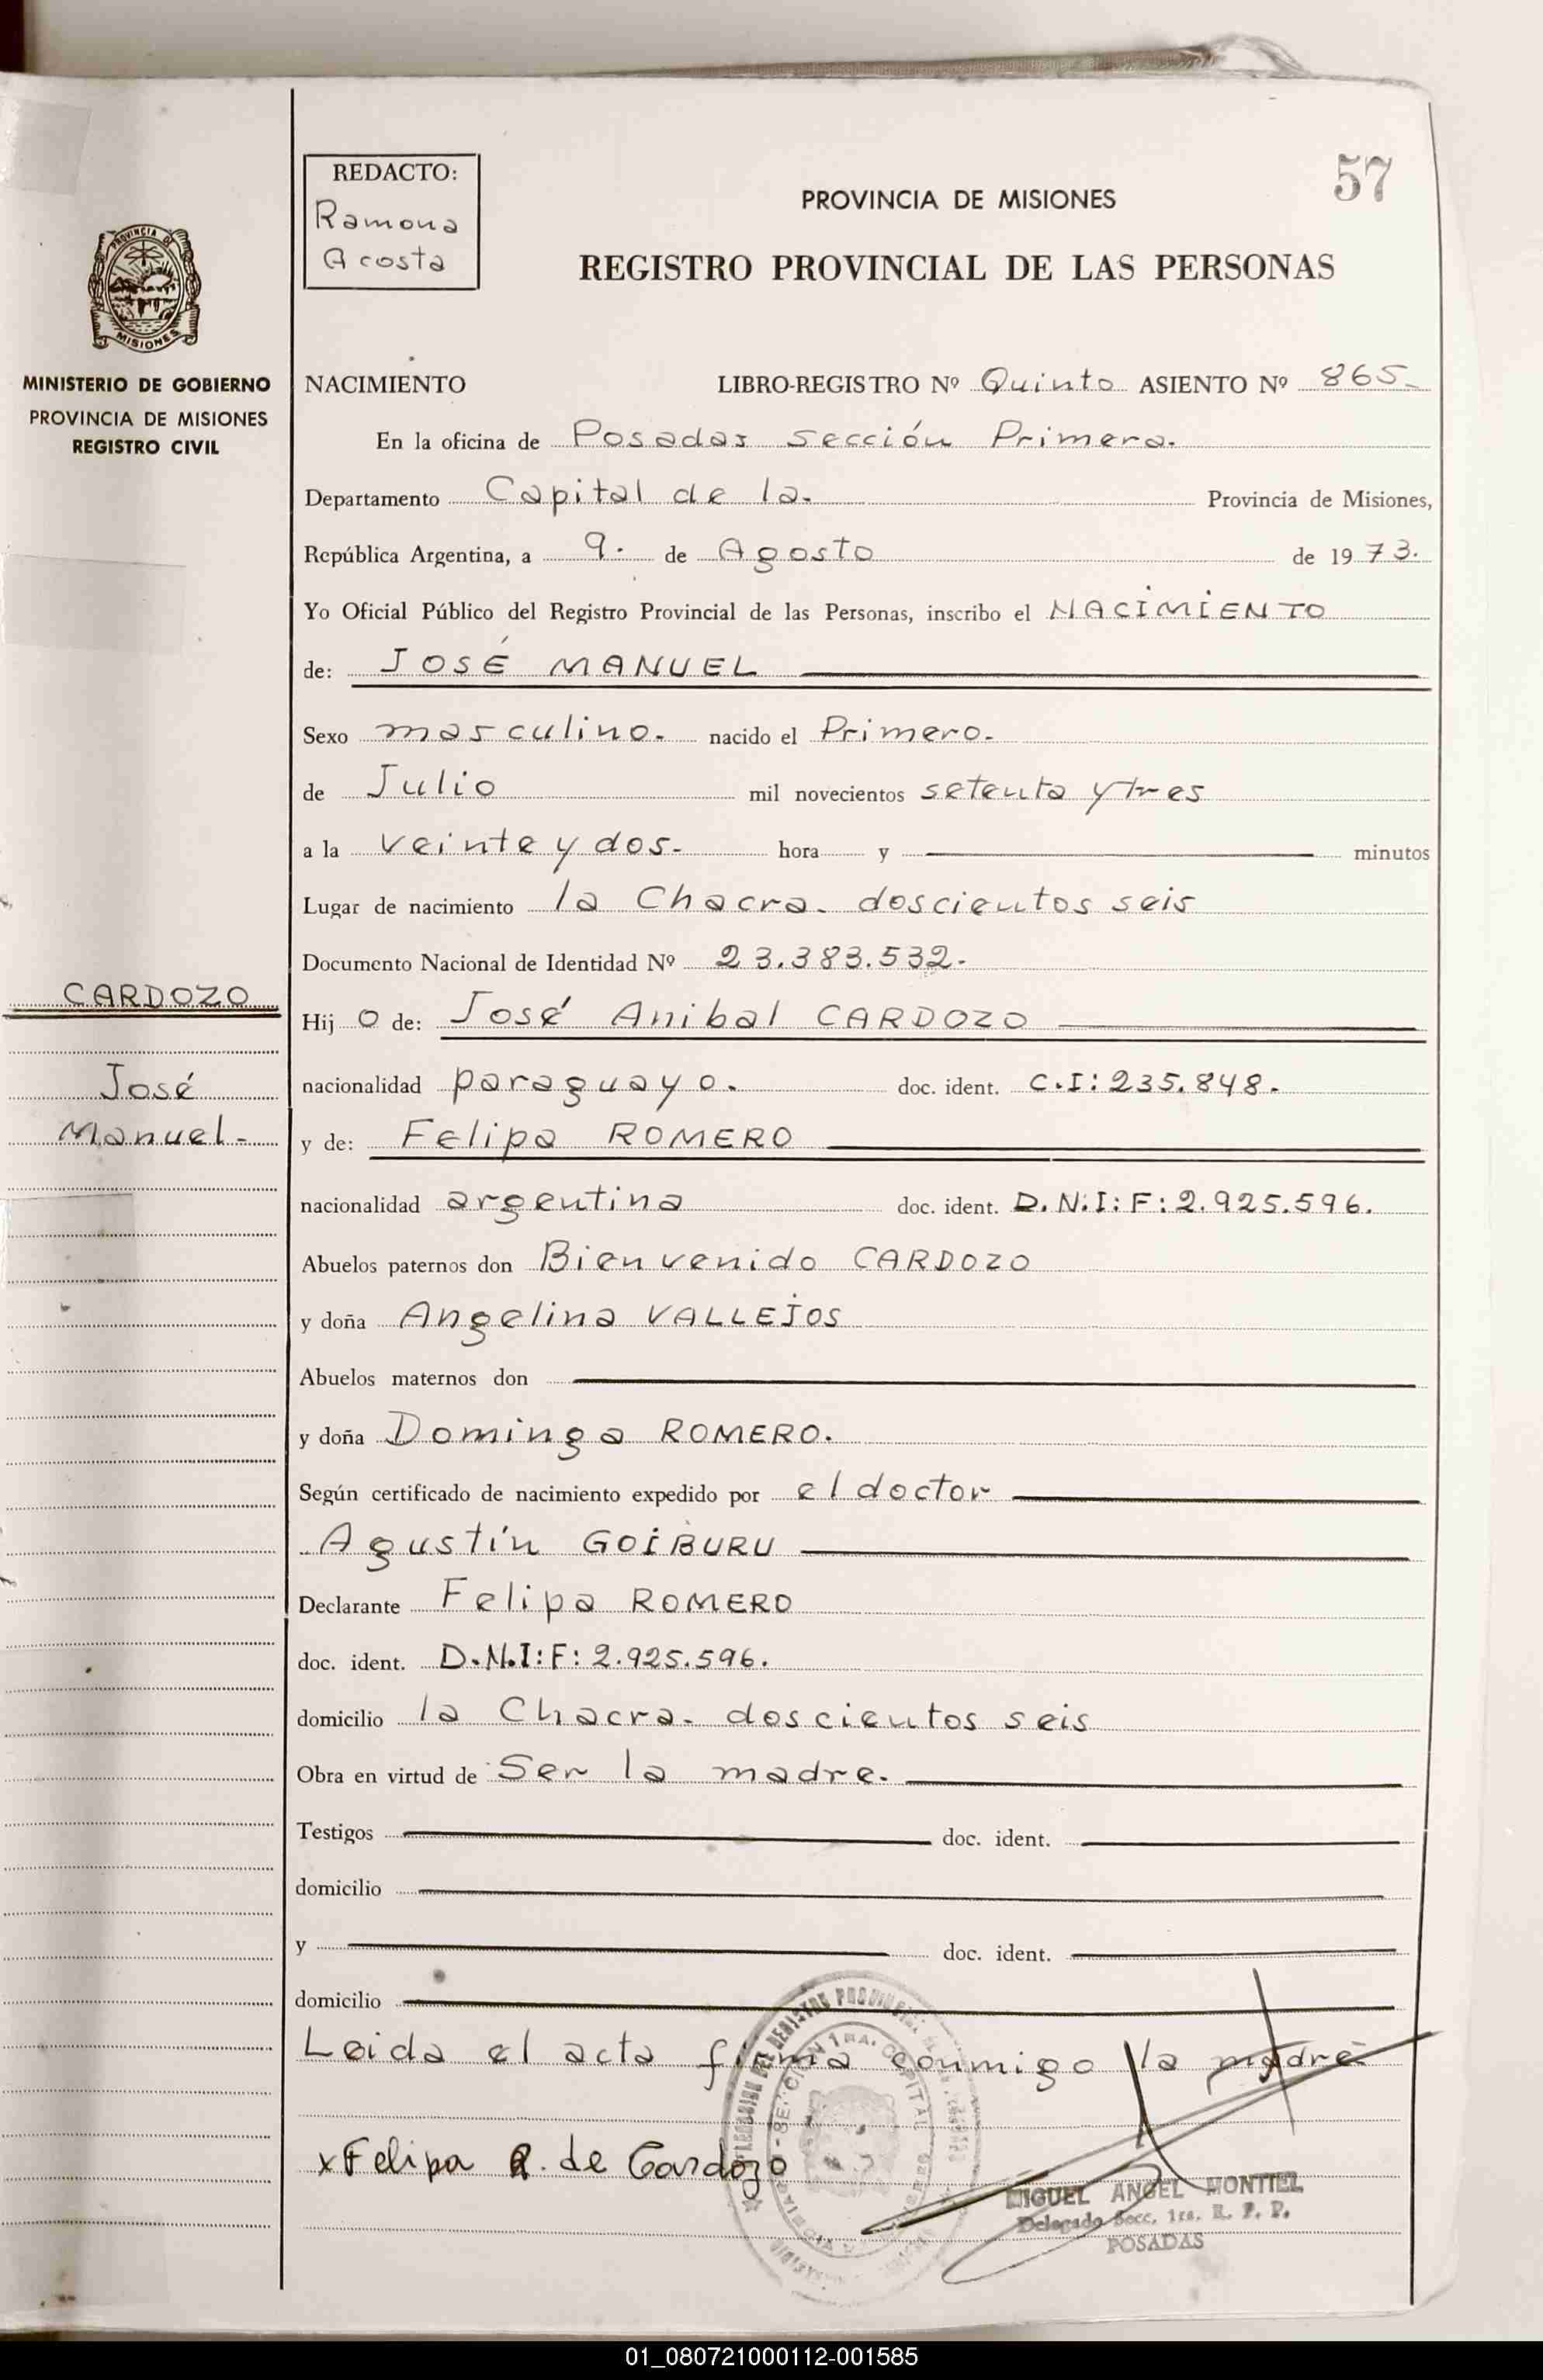 57
REDACTO:
Ramona
Acosta
PROVINCIA DE MISIONES
REGISTRO PROVINCIAL DE LAS PERSONAS
PROVINCIA DE
MISIONES
MINISTERIO DE GOBIERNO
PROVINCIA DE MISIONES
REGISTRO CIVIL
NACIMIENTO LIBRO-REGISTRO Nº Quinto ASIENTO Nº 865-
En la oficina de Posadas sección Primera.
Departamento Capital de la. Provincia de Misiones,
República Argentina, a 9. de Agosto de 1973.
Yo Oficial Público del Registro Provincial de las Personas, inscribo el NACIMIENTO
de: JOSÉ MANUEL
Sexo masculino. nacido el Primero.
de Julio mil novecientos setenta y tres
a la veinte y dos. hora y minutos
Lugar de nacimiento la Chacra. doscientos seis
Documento Nacional de Identidad Nº 23.383.532.
CARDOZO
José
Manuel-
Hijo de: José Anibal CARDOZO
nacionalidad paraguayo. doc. ident. C.I: 235.848.
y de: Felipa ROMERO
nacionalidad argentina doc. ident. D.N.I: F: 2.925.596.
Abuelos paternos don Bienvenido CARDOZO
y doña Angelina VALLEJOS
Abuelos maternos don
y doña Dominga ROMERO.
Según certificado de nacimiento expedido por el doctor
Agustín GOIBURU
Declarante Felipa ROMERO
doc. ident. D.N.I: F: 2.925.596.
domicilio la Chacra. doscientos seis
Obra en virtud de Ser la madre.
Testigos doc. ident.
domicilio
y doc. ident.
domicilio
Leida el acta firma conmigo la madre
x Felipa R. de Cardozo
MIGUEL ANGEL MONTIEL
Delegado Secc. 1ra. R. P. P.
POSADAS
01_080721000112-001585